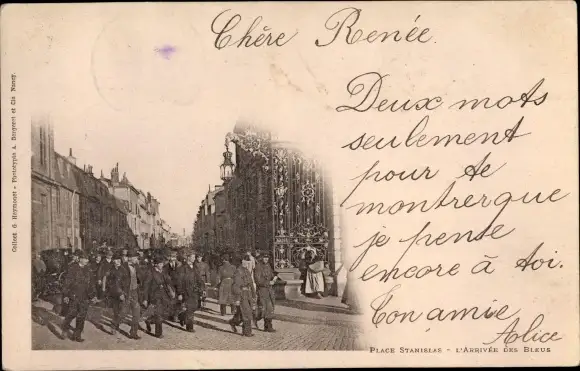 Chère Renée.
Deux mots
seulement
pour te
montrerque
je pense
encore à toi.
Ton amie
Alice
PLACE STANISLAS - L'ARRIVÉE DES BLEUS
Phototypie A. Bergeret et Cie Nancy.